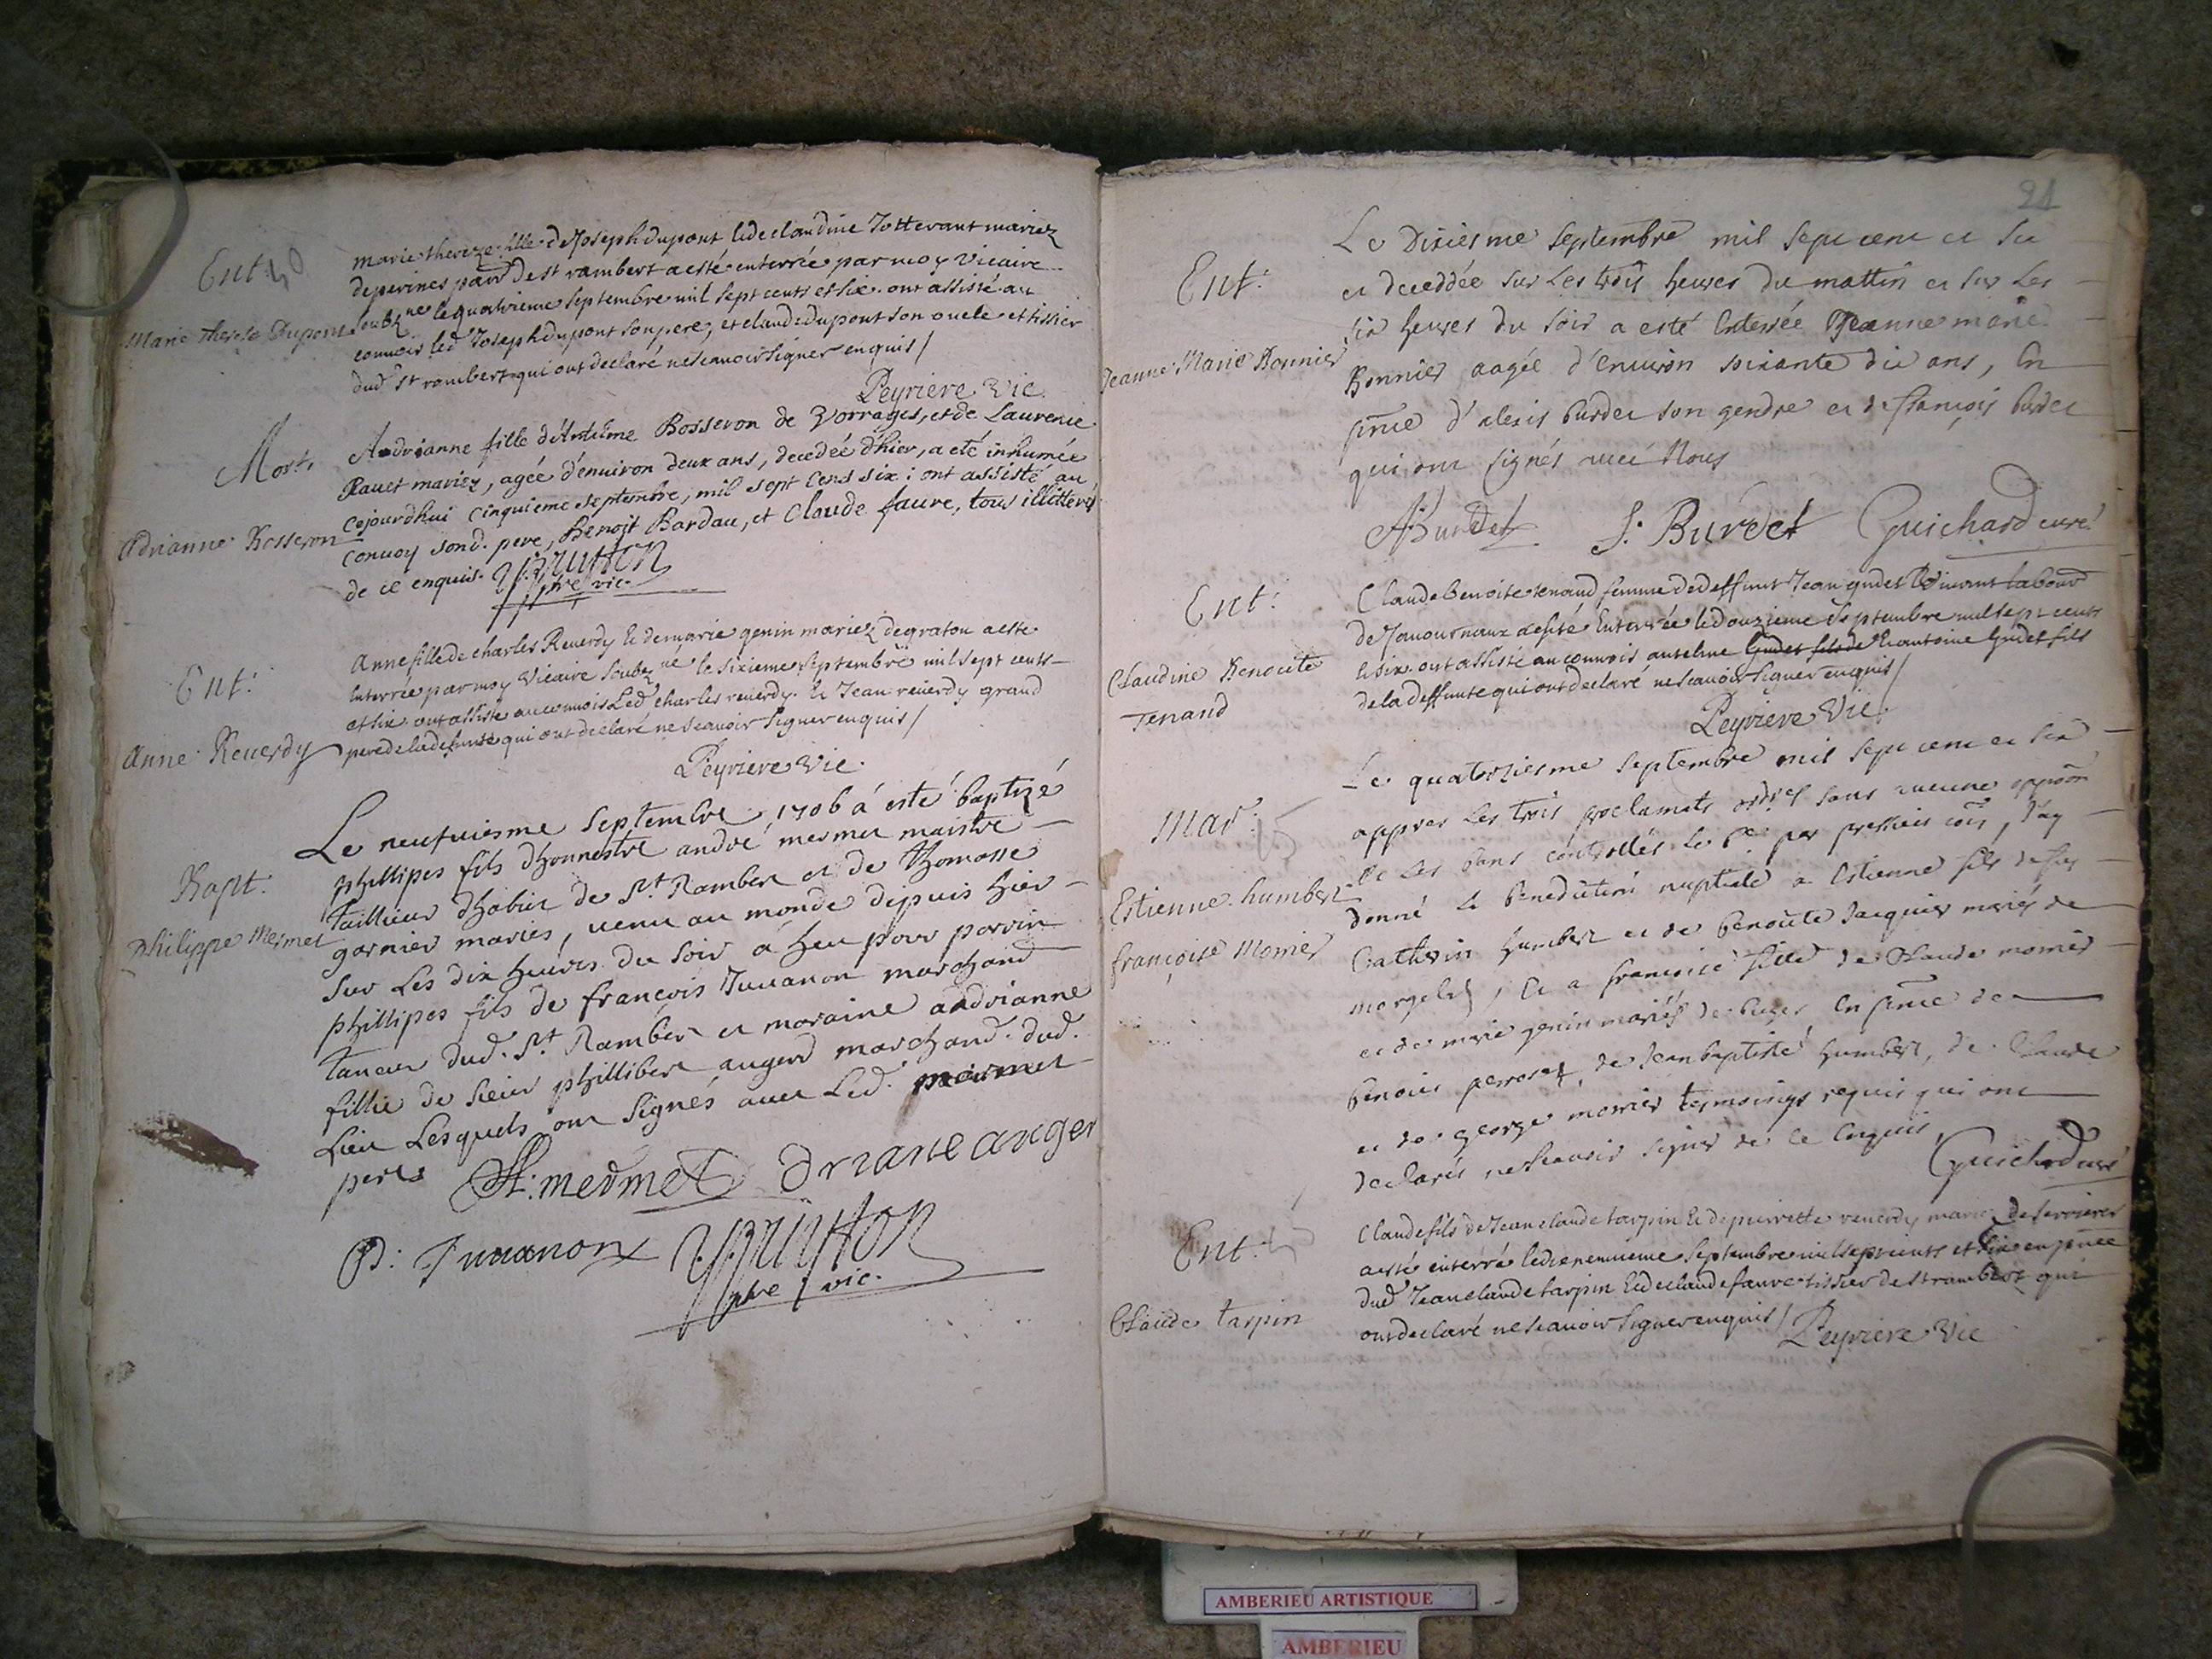 Ent:
Marie Therese Dupont
marie thereze fille de Joseph dupont & de claudine Jottevant mariez
de perrines parr. de st rambert a esté enterrée par moy Vicaire
soubz.ne le quatrieme septembre mil sept cents et six. ont assisté au
convois led Joseph dupont son pere, et claude dupont son oncle et tissier
dud st rambert qui ont declaré ne scauoir signer enquis /
Peyriere Vic.
Mort.
Adrianne Bosseron
Andrianne fille d'Antelme Bosseron de Vorrages, et de Laurence
Rauet mariez, agée d'enuiron deux ans, decedée d'hier, a eté inhumée
cejourdhui cinquieme septembre, mil sept cens six: ont assisté au
conuoy sond. pere, Benoit Bardau, et Claude faure, tous illitterés
de ce enquis.
pre vic.
Ent:
Anne Reuerdy
Anne fille de charles Reuerdy & de marie genin mariez de gratou a esté
enterrée par moy Vicaire soubz.né le sixieme septembre mil sept cents
et six ont assisté au connois Led charles reuerdy & Jean reuerdy grand
pere de la defunte qui ont declaré ne scauoir signer enquis /
Peyriere Vic.
Bapt:
philippe Mermet
Le neufuiesme Septembre 1706 a esté baptizé
phillipes fils dhonnestre andré mermet maistre
tailleur dhabits de St. Rambert et de Thomasse
garnier mariés, uenu au monde depuis hier
sur Les dix heures du soir a heu pour parrin
phillipes fils de françois Juuanon marchand
taneur dud. St. Rambert et maraine andrianne
fillie de sieur phillibert augerd marchand dud.
Lieu Lesquels ont signés auec Led. mermet
pere
A: mermet driane auger
P: Juuanon
pbre vic.
21
Ent:
Jeanne Marie Bonnier
Le Dixiesme Septembre mil sept cent et six
et deceddée sur Les trois heures du mattin et sur Les
six heures du soir a esté Enterrée Jeanne marie
Bonnier aagée d'enuiron soixante dix ans, En
pnce d'alexis burdet son gendre et de françois burdet
qui ont signés auec Nous
ABurdet f. Burdet Guichard curé
Ent:
Claudine Benoite Tenand
Claude Benoite tenand femme de deffunt Jean gudet Viuant labour
de Januournaux a esté Enterrée le douzieme septembre mil sept cents
et six. ont assisté au connois antelme Gudet fils de & antoine Gudet fils
de la deffunte qui ont declaré ne scauoir signer enquis /
Peyriere Vic.
Mar:
Estienne humbert
françoise Monier
Le quatorziesme septembre mil sept cent et six
appres Les trois proclamats ordres sans aucune opp̃on
& Les bans controllés le pr. par , J'ay
donné la benediction nuptiale a Estienne fils de feu
Cathrin humbert et de benoite Jacquier mariés de
morgelas, & a françoise fillie de Claude monier
et de marie genin mariés de buges En pnce de
benoit perroset, de Jean baptiste humbert, de Claude
et de george monier tesmoings requis qui ont
declarés ne scauoir signer de ce Enquis
Guichard curé
Ent:
Claude tarpin
Claude fils de Jean claude tarpin & de pierrette reuerdy mariez de serrieres
a esté enterré le dixneunieme septembre mil sept cents et six en pnce
dud Jean claude tarpin & de claude faure tissier de st rambert qui
ont declaré ne scauoir signer enquis /
Peyriere Vic
AMBERIEU ARTISTIQUE
AMBERIEU